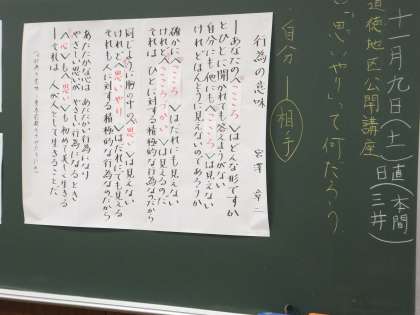 十一月九日(土)
日直(本間
三井
道徳地区公開講座
思いやりって何だろう
自分―相手
行為の意味　宮澤章二
―あなたの〈こころ〉はどんな形ですか
とひとに聞かれても答えようがない
自分にも他人にも〈こころ〉は見えない
けれどほんとうに見えないのであろうか
確かに〈こころ〉はだれにも見えない
けれど〈こころづかい〉は見えるのだ
それは ひとに対する積極的な行為なのだから
同じように胸の中の〈思い〉は見えない
けれど〈思いやり〉はだれにでも見える
それも人に対する積極的な行為なのだから
あたたかな心が あたたかい行為になり
やさしい思いが やさしい行為になるとき
〈心〉も〈思い〉も 初めて美しく生きる
―それは 人が人として生きることだ